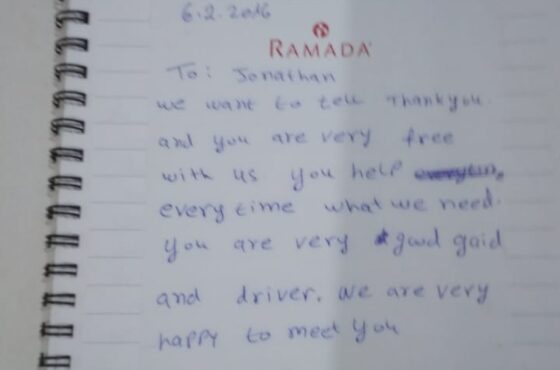 6.2.2016
RAMADA
To: Jonathan
we want to tell Thankyou.
and you are very free
with us you help
every time what we need.
you are very good gaid
and driver. we are very
happy to meet you